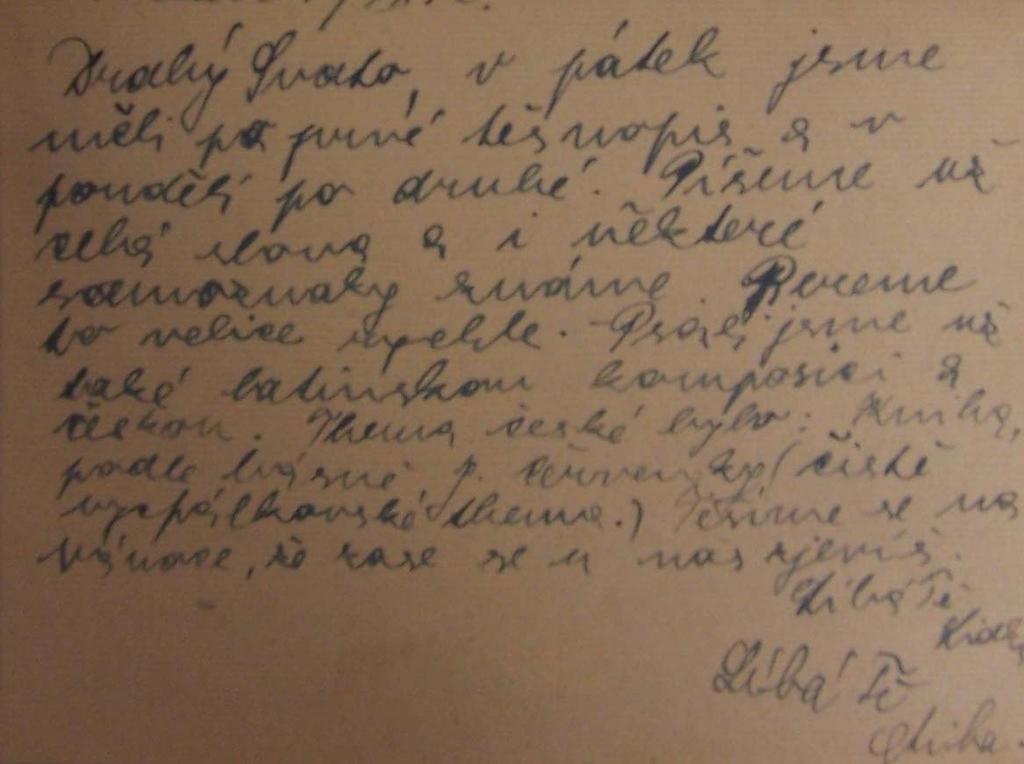 Drahý Sváťo, v pátek jsme
měli po prvé těsnopis a v
pondělí po druhé. Píšeme už
celá slova a i některé
samoznaky známe. Bereme
to velice rychle. Psali jsme už
také latinskou komposici a
českou. Thema české bylo: Kniha,
podle básně p. Červenky (čistě
vyspálkovské thema.) Těšíme se na
vánoce, že zase se u nás zjevíš.
Líbá Tě
Líbá Tě